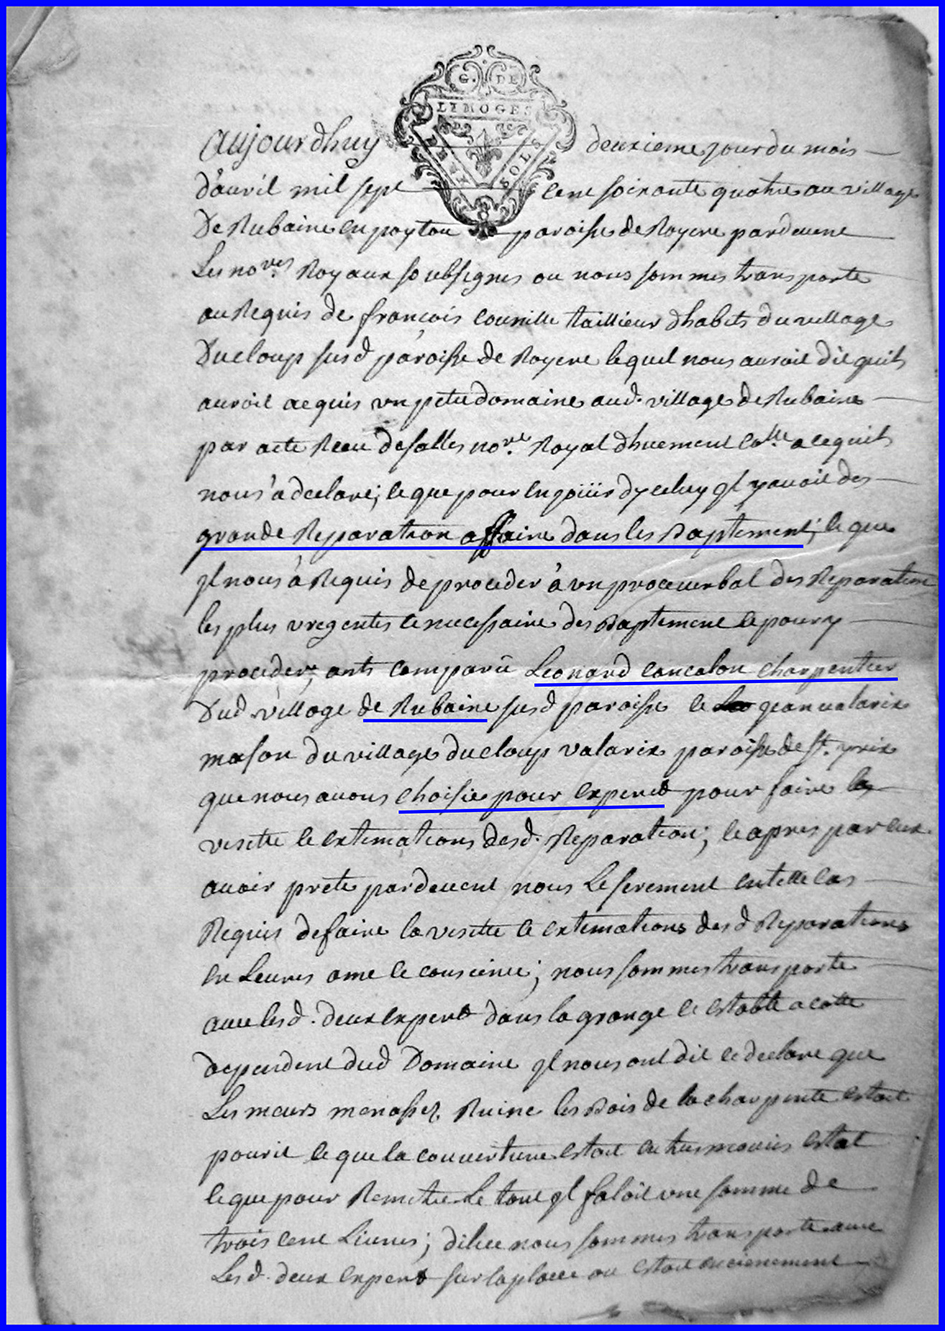 G. DE
LIMOGES
SOLS
aujourdhuy deuxieme jour du mois
d'avril mil sept cens soixante quatre au village
De Rubaine en poytou paroisse de Royere pardevens
Les no.res Royaux soubsignes ou nous sommes transporte
au Requis de françois tallieur dhabits du village
Du cloup susd. paroisse de Royere lequel nous auroit dit quil
auroit acquis un petit domaine aud. village de Rubaine
par acte Receu de salles no.re Royal dhuement ce quil
nous à declare; et que pour en joüir dyceluy il y avoit des
grande Reparation affaire dans les Baptiment; et que
il nous à Requis de proceder à un proceverbal des Reparation
les plus vregentes et necessaire des Baptiment et pour y
proceder, onts comparü Leonard cancalon charpentier
Dud. village de Rubaine susd. paroisse et jean valarie
mason du village du cloup valarie paroisse de st. yrie
que nous avons choisie pour expend pour faire la
visitte et extimations desd. Reparation; et apres par eux
avoir prete pardevent nous Le serement en tel cas
Requis de faire la visitte et extimations desd. Reparations
en Leurs ame et consience; nous sommes transporte
avec lesd. deux expert dans la grange et estable a cotte
dependent dud. Domaine il nous ont dit et declare que
Les meurs menassez Ruine les Bois de la charpente estoit
pourit et que la couverture estoit en tres movais estat
et que pour Remetre Le tout il faloit une somme de
trois cens Livres; dillec nous sommes transporte avec
Lesd. deux expert sur la place ou estoit enciennement